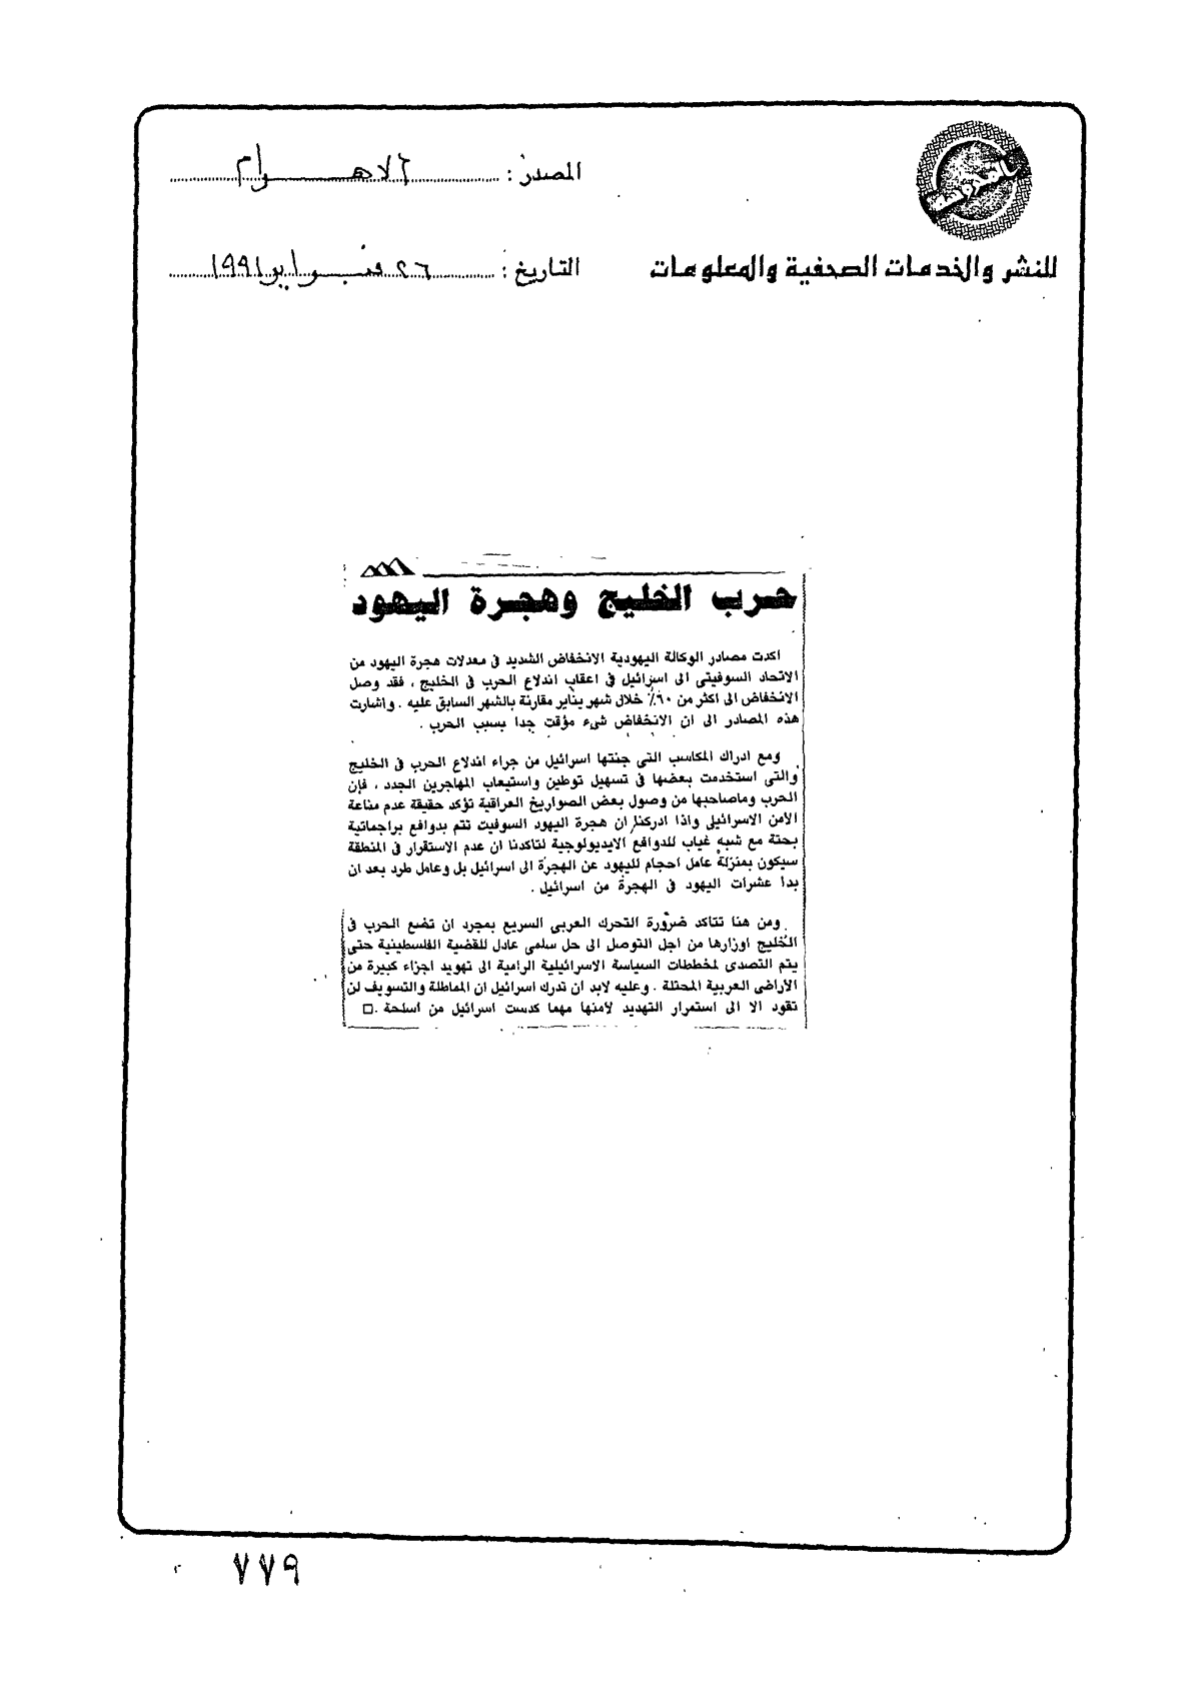 المصدر : الاهرام
للنشر والخدمات الصحفية والمعلومات
التاريخ : ٢٦ فبراير ١٩٩١
حرب الخليج وهجرة اليهود
اكدت مصادر الوكالة اليهودية الانخفاض الشديد فى معدلات هجرة اليهود من
الاتحاد السوفيتى الى اسرائيل فى اعقاب اندلاع الحرب فى الخليج ، فقد وصل
الانخفاض الى اكثر من ٦٠٪ خلال شهر يناير مقارنة بالشهر السابق عليه . واشارت
هذه المصادر الى ان الانخفاض شىء مؤقت جدا بسبب الحرب .
ومع ادراك المكاسب التى جنتها اسرائيل من جراء اندلاع الحرب فى الخليج
والتى استخدمت بعضها فى تسهيل توطين واستيعاب المهاجرين الجدد ، فإن
الحرب وماصاحبها من وصول بعض الصواريخ العراقية تؤكد حقيقة عدم مناعة
الأمن الاسرائيلى واذا ادركنا ان هجرة اليهود السوفيت تتم بدوافع براجماتية
بحتة مع شبه غياب للدوافع الايديولوجية لتاكدنا ان عدم الاستقرار فى المنطقة
سيكون بمنزلة عامل احجام لليهود عن الهجرة الى اسرائيل بل وعامل طرد بعد ان
بدأ عشرات اليهود فى الهجرة من اسرائيل .
ومن هنا تتاكد ضرورة التحرك العربى السريع بمجرد ان تضع الحرب فى
الخليج اوزارها من اجل التوصل الى حل سلمى عادل للقضية الفلسطينية حتى
يتم التصدى لمخططات السياسة الاسرائيلية الرامية الى تهويد اجزاء كبيرة من
الأراضى العربية المحتلة . وعليه لابد ان تدرك اسرائيل ان المماطلة والتسويف لن
تقود الا الى استمرار التهديد لأمنها مهما كدست اسرائيل من اسلحة .
٧٧٩